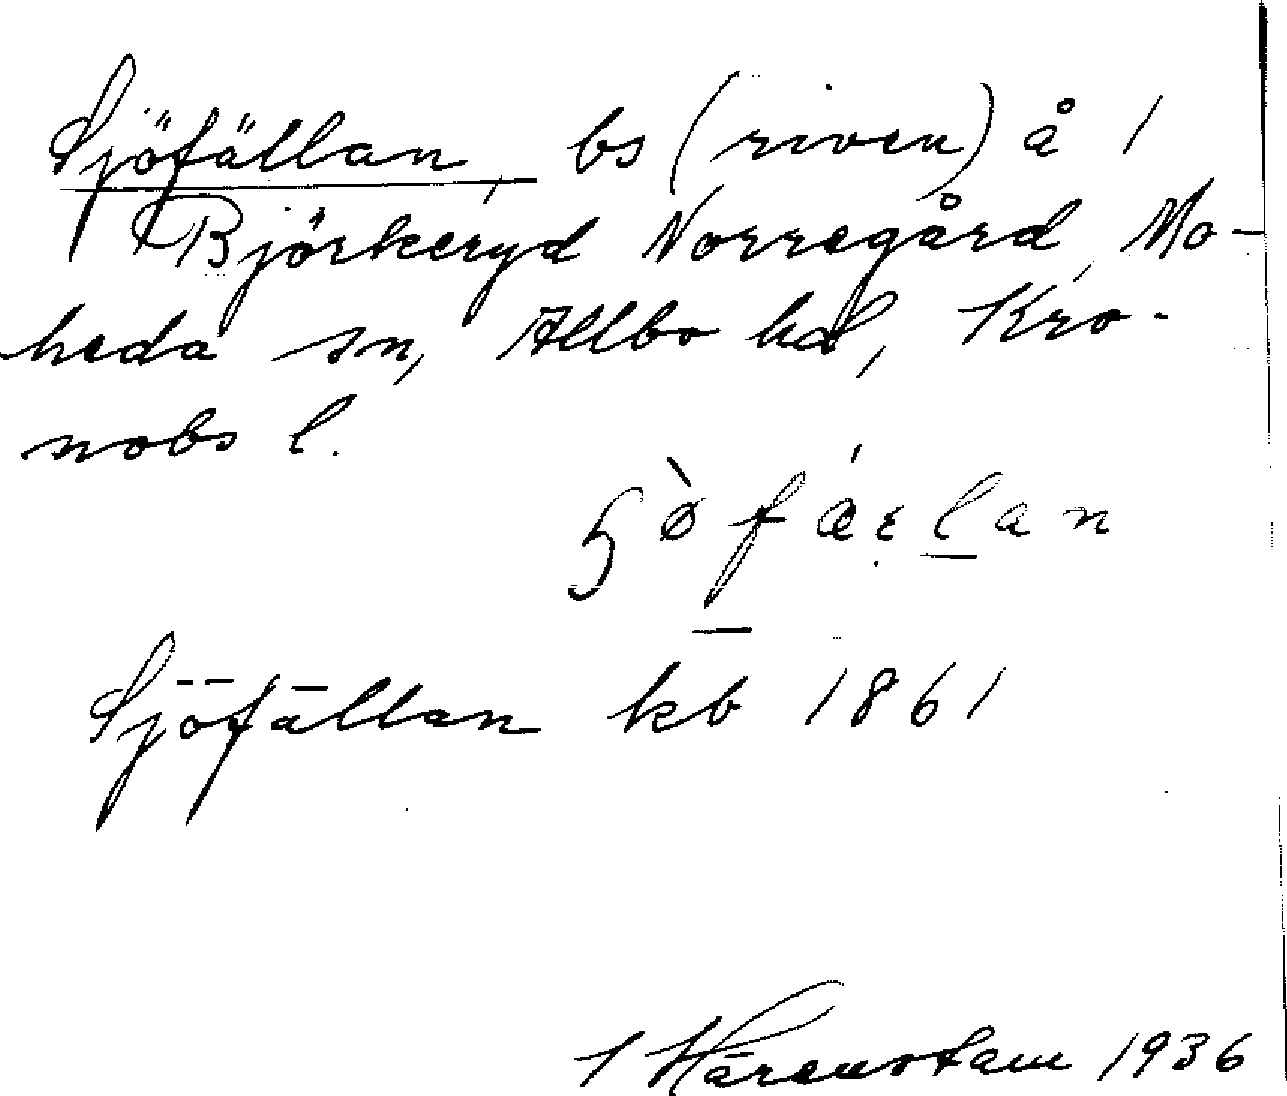 Sjöfällan, bs (riven) å 1
Björkeryd Norregård, Mo-
heda sn, Allbo hd, Kro-
nobs l.
Sjöfällan kb 1861
Härenstam 1936